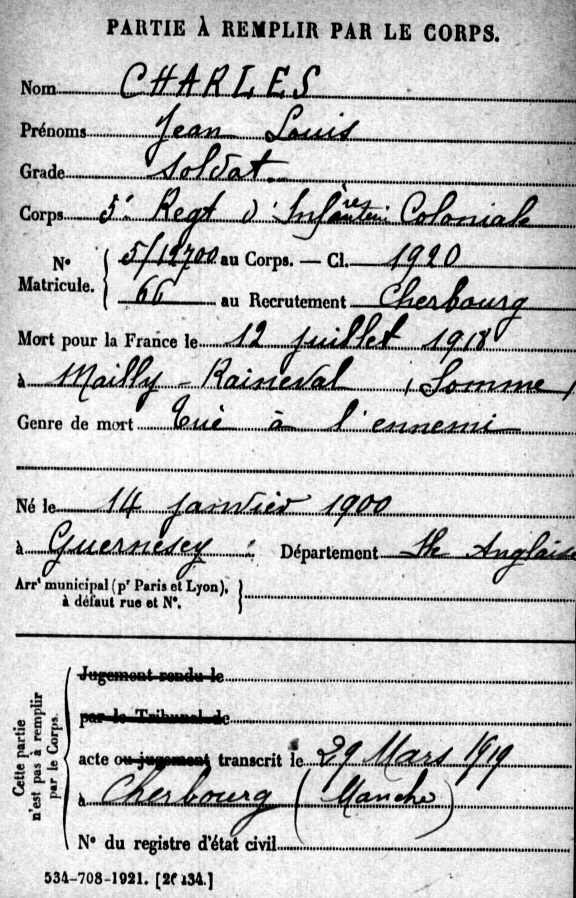 PARTIE À REMPLIR PAR LE CORPS.
Nom CHARLES
Prénoms Jean Louis
Grade Soldat
Corps 5e Regt d'Infanterie Coloniale
No Matricule. 5/12700 au Corps. — Cl. 1920
66 au Recrutement Cherbourg
Mort pour la France le 12 juillet 1918
à Mailly-Raineval (Somme)
Genre de mort Tué à l'ennemi
Né le 14 janvier 1900
à Guernesey Département Ile Anglaise
Arrt municipal (pr Paris et Lyon),
à défaut rue et No.
Cette partie
n'est pas à remplir
par le Corps.
Jugement rendu le
par le Tribunal de
acte ou jugement transcrit le 29 Mars 1919
à Cherbourg (Manche)
No du registre d'état civil
534-708-1921. [26134.]